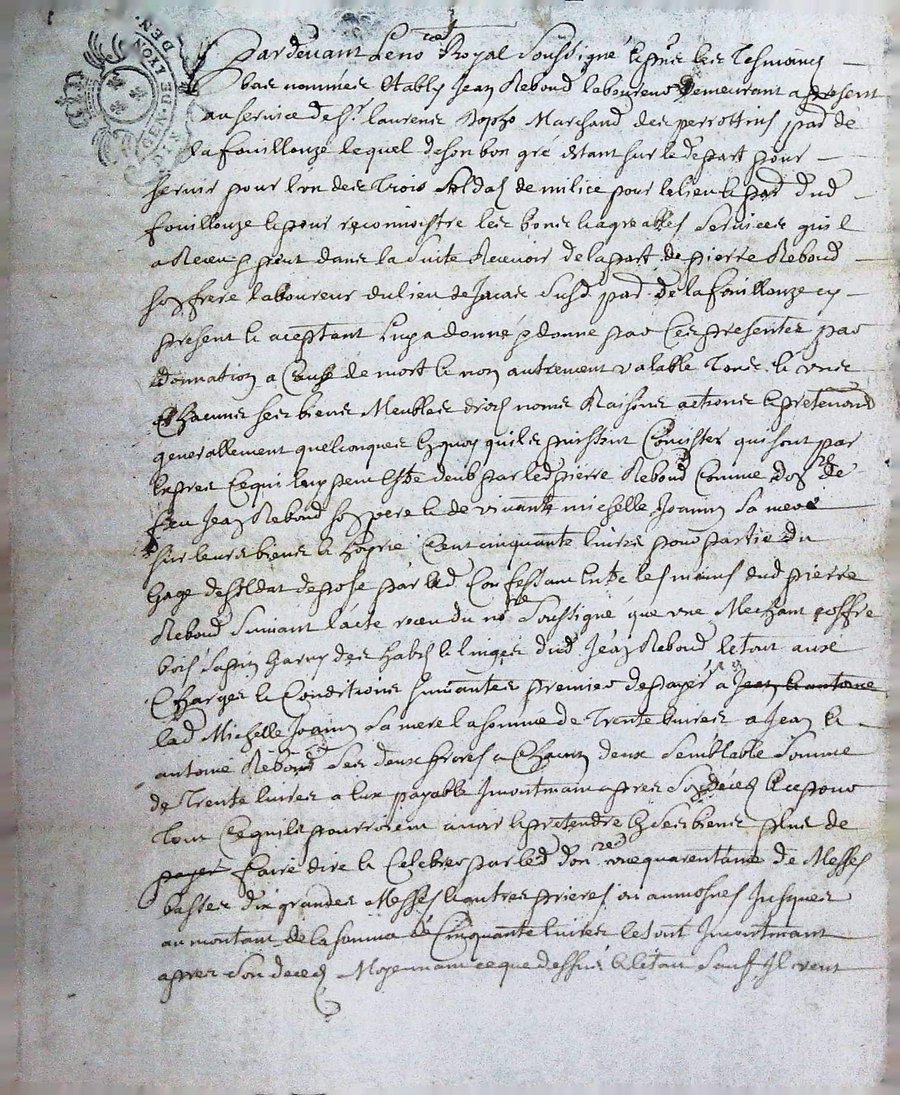 GEN. DE LYON
DEN.
Pardevant Le no.re Royal Soussigné & pnt les Tesmoings
bas nommés Estably Jean Reboud laboureur Demeurant a present
au service de Sr. laurens Marchand des perrottins par. de
la fouillouze lequel de son bon gré estant sur le depart pour
servir pour l'un des Trois Soldats de milice pour le lieu & par. dud
fouillouze & pour reconnoistre les bons & agreables services qu'il
a Receu & peut dans la Suitte Recevoir de la part de pierre Reboud
son frere laboureur du lieu de Susd. par. de la fouillouze cy
present & aceptant Luy a donné & donne par ces presentes par
donnation a Cause de mort & non autrement valable Tous & uns
Chacuns ses biens Meubles droits noms Raisons actions & pretentions
generallement quelconques En quoy qu'ils puissent Consister qui sont par
Expres Ce qui luy peut Estre deub par led pierre Reboud Comme don.re de
feu Jean Reboud son pere & de vivante michelle Joanin Sa mere
sur leurs biens & Cent cinquante livres pour partie du
Gage de soldat deposé par led Confessant Entre les mains dud pierre
Reboud Suivant l'acte receu du no.re Soussigné que une Mechant coffre
bois Sapin Garny des habits & linges dud Jean Reboud le tout aux
Charges & Conditions Suivantes premier de payer a Jean & antoine
lad Michelle Joanin Sa mere la somme de Trente livres a Jean &
antoine Reboud Ses deux freres a Chacun deux Semblable Somme
de Trente livres a Eux payable Incontinant apres Son deces & ce pour
Tout Ce qu'ils pourroient avoir & pretendre En Ses biens plus de
payer faire dire & Celebrer par led don.re une quarentaine de Messes
basses dix grandes Messes & autres prieres ou aumosnes Jusques
au montant de la somme de Cinquante livres le tout Incontinant
apres Son deces Moyennant ce que dessus Sauf Il veut